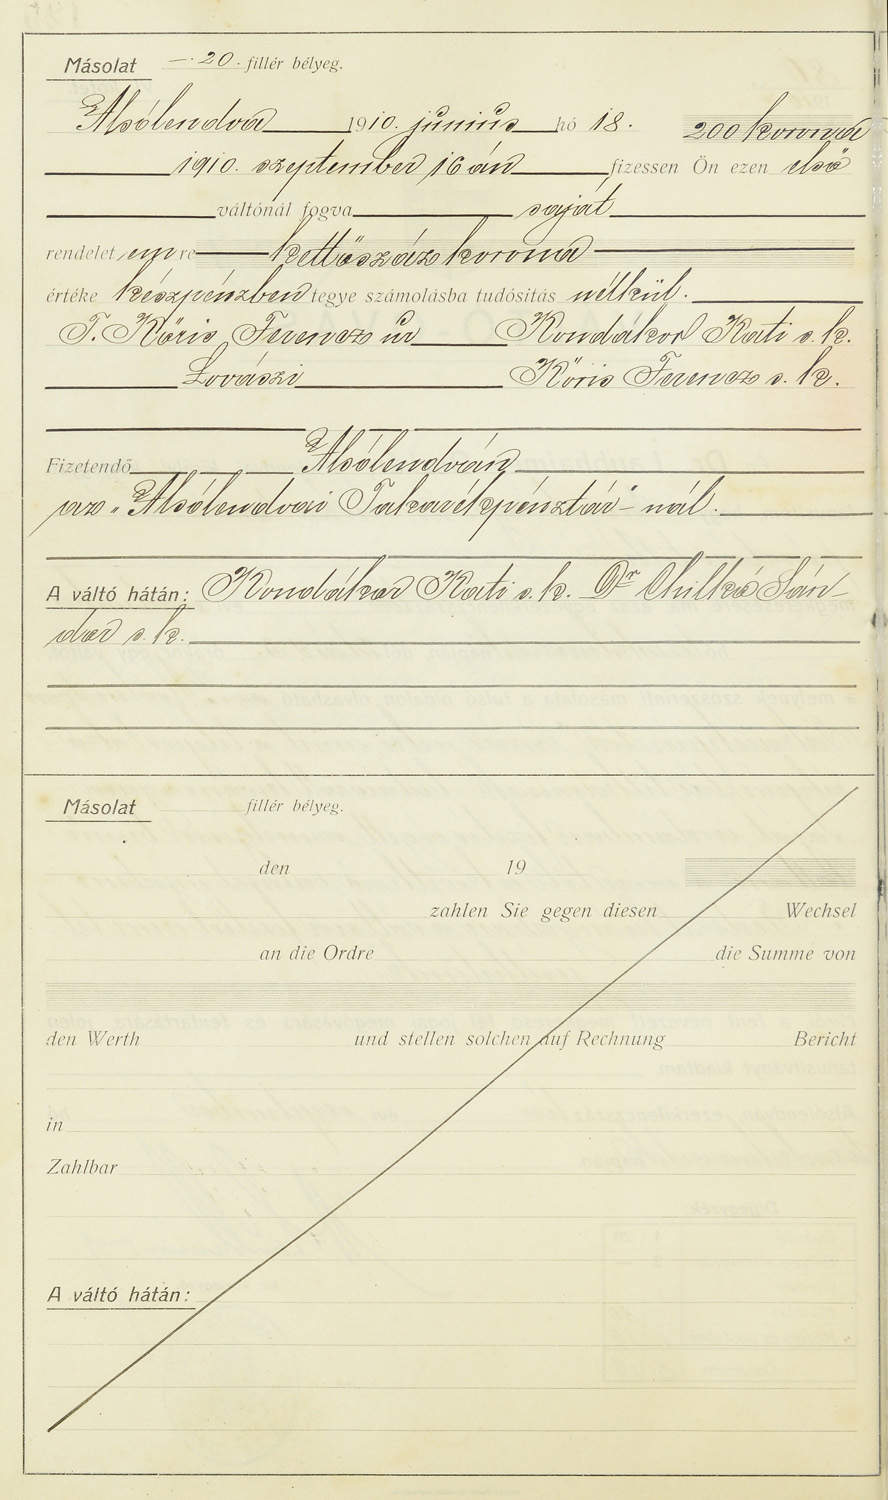 Másolat —.20. fillér bélyeg.
Alsólendva 1910. junius hó 18. 200 korona
1910. szeptember 16 án fizessen Ön ezen első
váltónál fogva saját
rendelet em re kettőszáz korona
értéke készpénzben tegye számolásba tudósítás nélkül.
T. Kőris Ferencz ur Kondákor Kati s.k.
Lovászi Kőris Ferencz s.k.
Fizetendő Alsólendván
az „Alsólendvai Takarékpénztár"-nál.
A váltó hátán: Kondákor Kati s.k. Dr Chilkó Sán-
dor s.k.
Másolat fillér bélyeg.
den 19
zahlen Sie gegen diesen Wechsel
an die Ordre die Summe von
den Werth und stellen solchen auf Rechnung Bericht
in
Zahlbar
A váltó hátán: